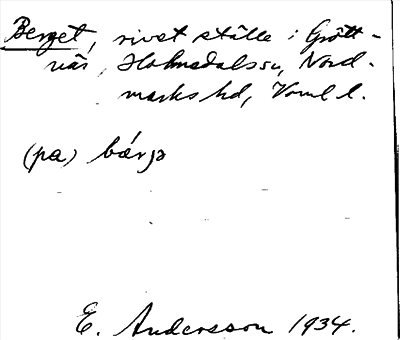 Berget, rivet ställe i Grött-
näs, Holmedals sn, Nord-
marks hd, Vrml l.
(pa) bærjə
E. Andersson 1934.